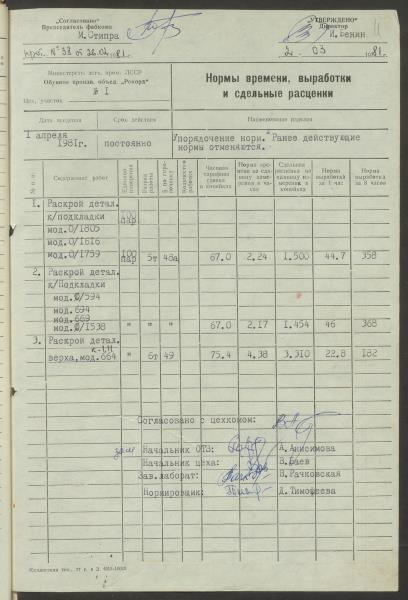 „Согласовано"
Председатель фабкома
И. Стипра
прот. № 38 от 26.02.81.
„УТВЕРЖДЕНО"
Директор
И. Венин
2. 03 1981.
Министерство легк. пром. ЛССР
Обувное произв. объед. „Рекорд"
№ I
Цех, участок
Нормы времени, выработки
и сдельные расценки
Дата введения Срок действия Наименование изделия
I апреля
1981г. постоянно
Упорядочение норм. Ранее действующие
нормы отменяются.
№ п. п. Содержание работ Единица измерения Разряд работы Кодировка работы Часовая тарифная ставка в копейках Норма времени на единицу измерения в часах Сдельная расценка на единицу измерения в копейках Норма выработки за 1 час Норма выработки за 8 часов
1. Раскрой детал.
к/подкладки 100 пар
мод.0/1805
мод.0/1616
мод.0/1759 100 пар 5т 48а 67.0 2.24 1.500 44.7 358
2. Раскрой детал.
к/Подкладки
мод.0/594
мод. 694
мод. 669
мод.0/1538 " " " 67.0 2.17 1.454 46 368
3. Раскрой детал.
к-1,11
верха,мод.664 " 6т 49 75.4 4.38 3.310 22.8 182
Согласовано с цехкомом:
Начальник ОТЗ: А.Анисимова
Начальник цеха: В.Баев
Зав.лаборат: В.Рачковская
Нормировщик: Д.Тимофеева